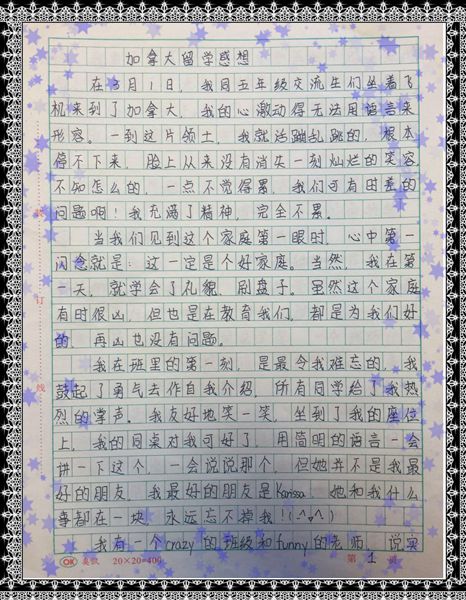 加拿大留学感想
在3月1日，我同五年级交流生们坐着飞
机来到了加拿大，我的心激动得无法用语言来
形容。一到这片领土，我就活蹦乱跳的，根本
停不下来，脸上从来没有消失一刻灿烂的笑容
不知怎么的，一点不觉得累，我们可有时差的
问题啊！我充满了精神，完全不累。
当我们见到这个家庭第一眼时，心中第一
闪念就是：这一定是个好家庭。当然，我在第
一天，就学会了礼貌，刷盘子。虽然这个家庭
有时很凶，但也是在教育我们，都是为我们好
的，再凶也没有问题。
我在班里的第一刻，是最令我难忘的，我
鼓起了勇气去作自我介绍，所有同学给了我热
烈的掌声。我友好地笑一笑，坐到了我的座位
上，我的同桌对我可好了，用简明的语言一会
讲一下这个，一会说说那个，但她并不是我最
好的朋友，我最好的朋友是Karissa，她和我什么
事都在一块，永远忘不掉我！(^▽^)
我有一个crazy的班级和funny的老师，说实
订
线
OK 20×20=400
第 1 页